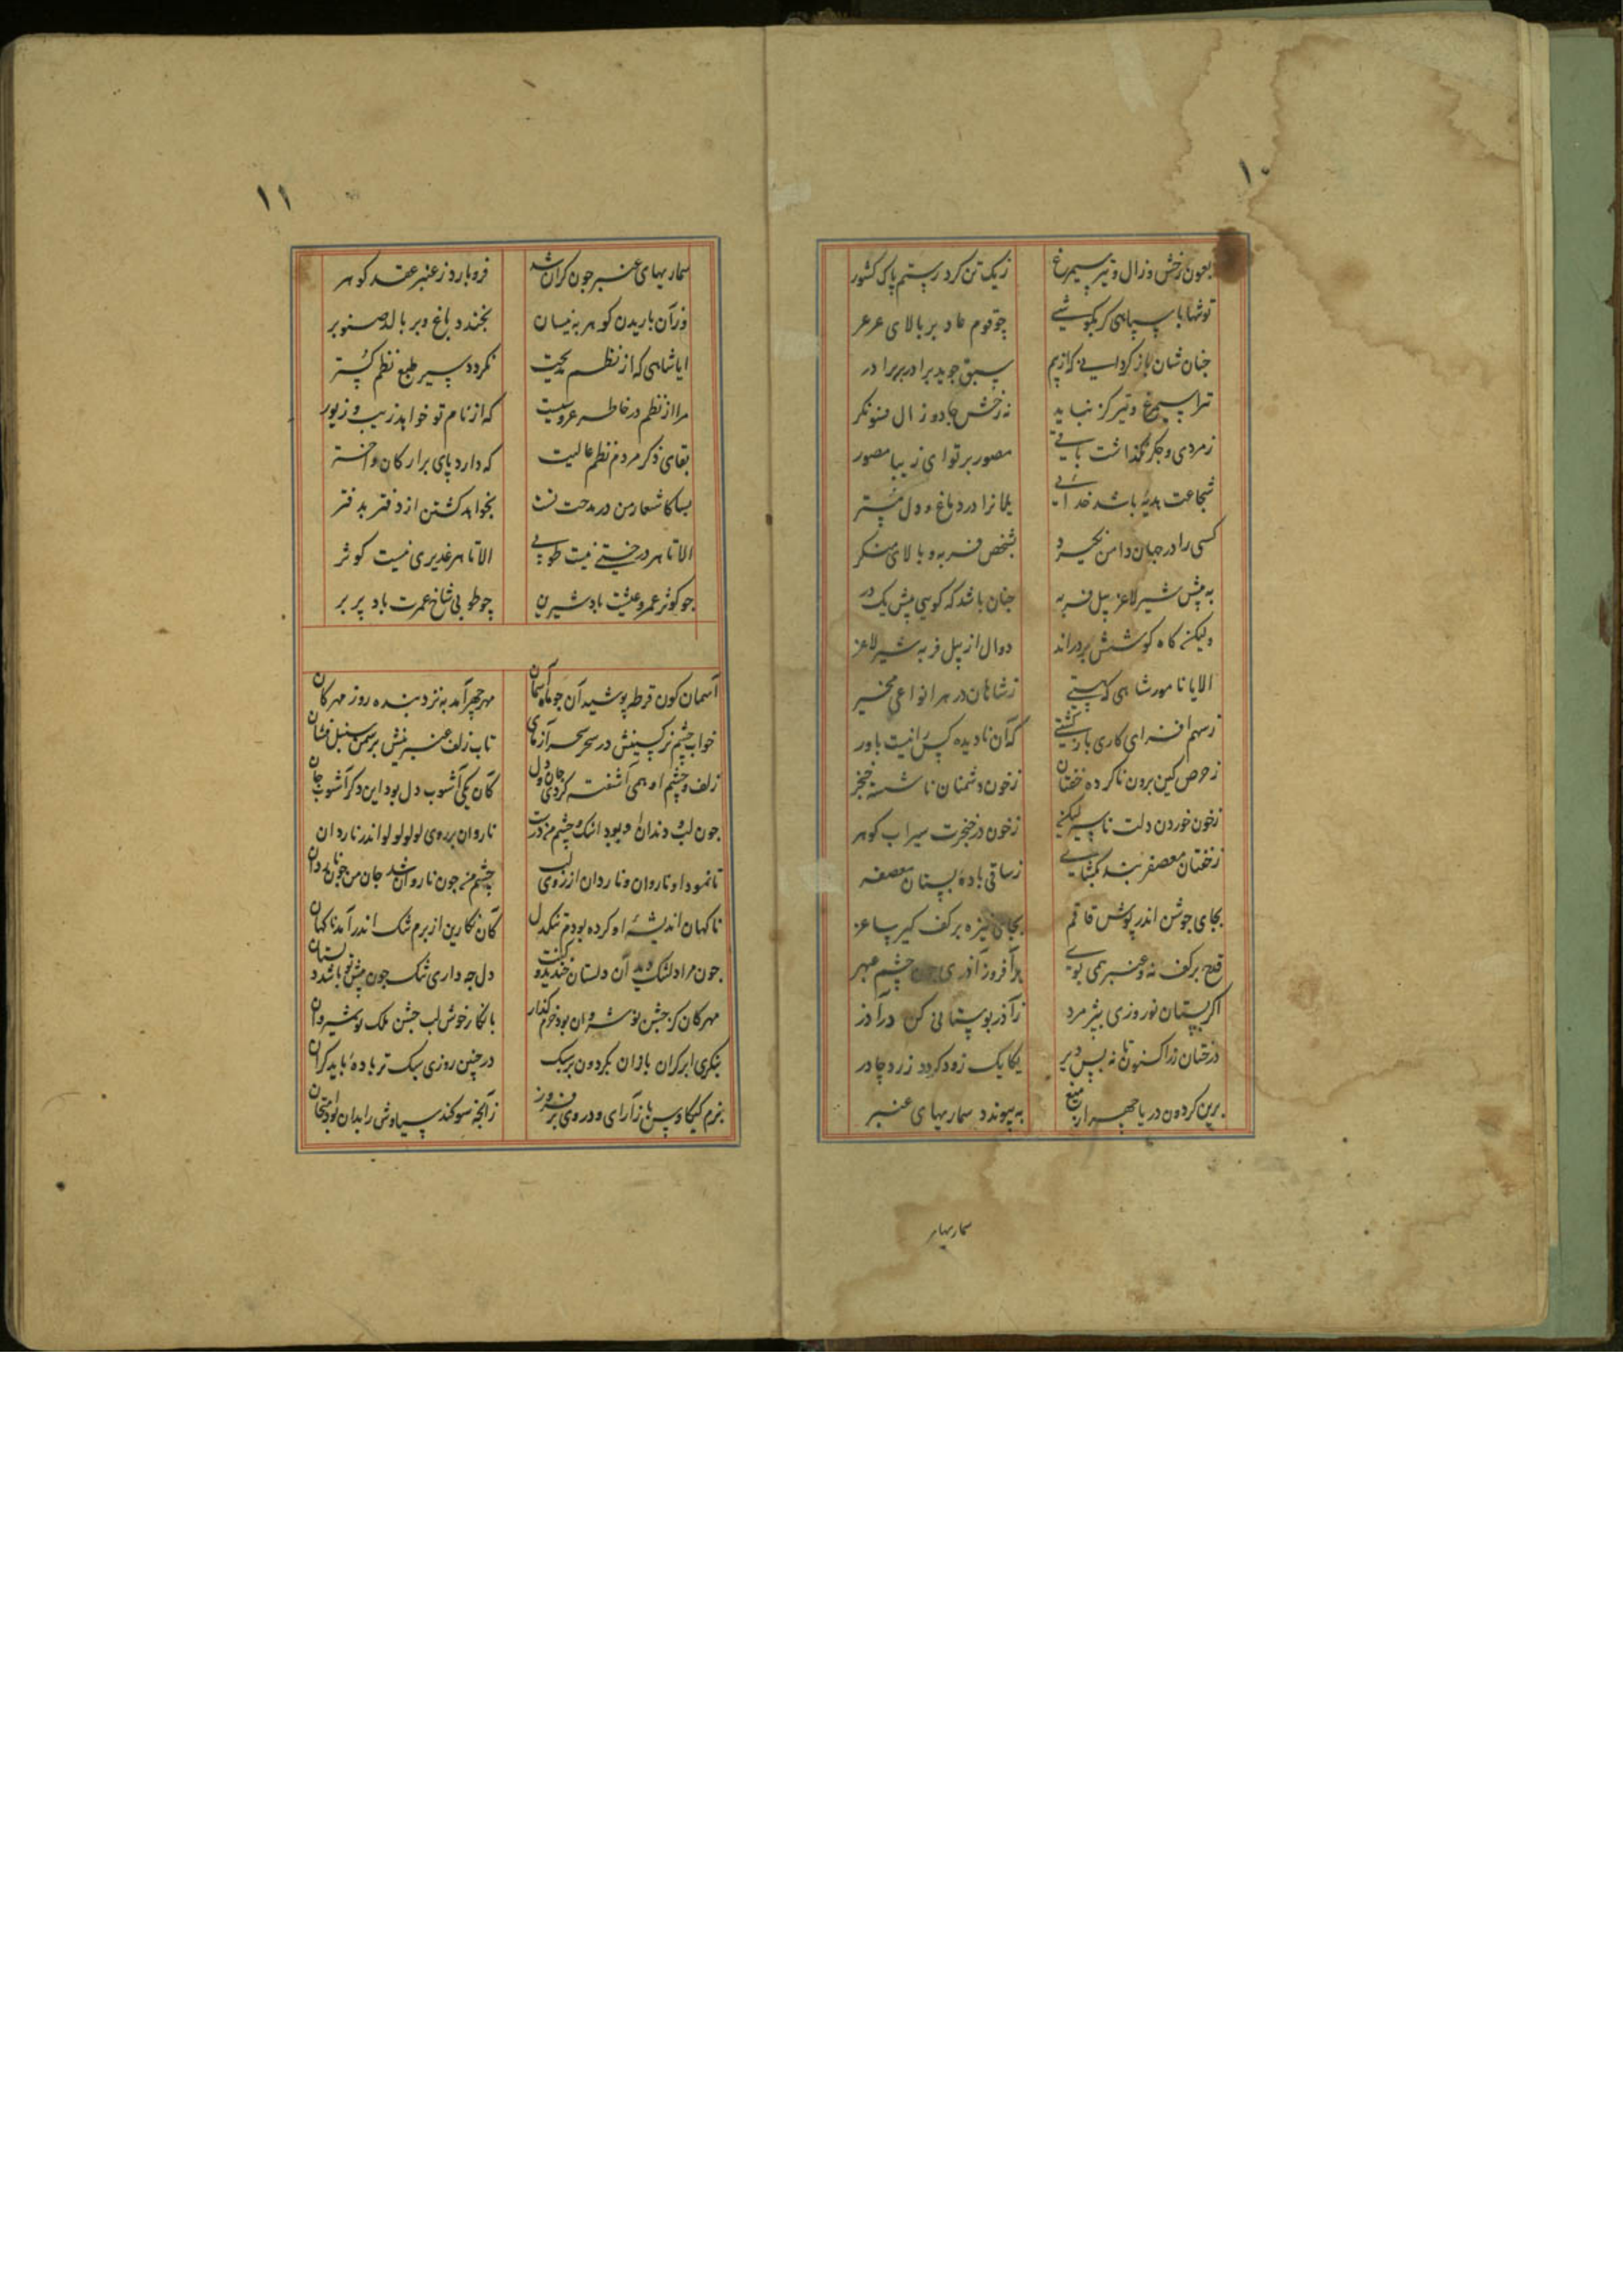 ۱۰
بعون رخش و زال و تیر سیمرغ زیک تن کرد رستم پاک کشور
تو تنها با سپاهی کر بکوشی چو قوم عاد بر بالای عرعر
جنان شان باز کردانی که از بیم سبق جوید برادر بر برادر
ترا سیمرغ و تیر کز نباید نه رخش جادو و زال فسونکر
ز مردی و جکر نکذاشت باقی مصور بر تو ای زیبا مصور
شجاعت بدیه باشد خدائی یلانرا در دماغ و دل مشتر
کسی را در جهان دامن نکیرد بشخص فربه و بالای منکر
به پیش شیر لاغر پیل فربه جنان باشد که کویی پیش یک در
ولیکن کاه کوشش بردراند دوال از پیل فربه شیر لاغر
الا یا نامور شاهی که هستی ز شاهان در هر انواعی مخیر
ز سهم افزای کاری بازکشتی که آن نادیده کس را نیست باور
ز حرص کین برون ناکرده خفتان ز خون دشمنان ناشسته خنجر
ز خون خوردن دلت ناسیر لیکن ز خون در خنجرت سیراب کوهر
ز خفتان معصفر شد بکشای ز ساقی باده بستان معصفر
بجای جوشن اندر پوش قاقم بجای نیزه بر کف کیر ساغر
قدح برکف نه و عنبر همی بوی برافروز آذری جون چشم مهر
اکر بستان نوروزی بپژمرد ز آذر بوستانی کن در آذر
درختان را کنون تا نه بس دیر یکایک زود کردد زرد چادر
برین کردون دریا چهر ار میغ به پیوندد سماریهای عنبر
سماریها
۱۱
سماریهای عنبر جون کران شد فروبارد ز عنبر عقد کوهر
وز آن باریدن کوهر به نیسان بخندد باغ و بر بالد صنوبر
ایا شاهی که از نظم مدیحت نکردد سیر طبع نظم کستر
مرا از نظم در خاطر عروسیست که از نام تو خواهد زیب و زیور
بقای ذکر مردم نظم عالیست که دارد پای بر ارکان و اختر
بسا کاشعار من در مدحت تست بخواهد کشتن از دفتر بدفتر
الا تا هر درختی نیست طوبی الا تا هر غدیری نیست کوثر
جو کوثر عمر و عیشت باد شیرین چو طوبی شاخ عمرت باد پر بر
آسمان کون قرطه پوشید آن جو ماه آسمان مهرچهر آمد به نزد بنده روز مهرکان
خواب چشم نرکسینش در سحر سحر آزمای تاب زلف عنبرینش بر سمن سنبل فشان
زلف و چشم او همی آشفته کردی جان و دل کان یکی آشوب دل بود این دکر آشوب جان
جون لب و دندان او بود اشک و چشم من درست ناروان بر روی لولو لولو اندر ناردان
تا نمود او ناروان و ناردان از روی لب چشم من جون ناروان شد جان من جون ناردان
ناکهان اندیشه او کرده بودم تنکدل کان نکارین از برم تنک اندر آمد ناکهان
جون مرا دلتنک دید آن دلستان خندید و کفت دل چه داری تنک جون پیش تو باشد دلستان
مهرکان کز جشن نوشروان بود خرم کذار با نکار خوش لب جشن ملک نوشیروان
بنکری ابر کران باران بکردون بر سبک در چنین روزی سبک تر باده باید کران
بزم کیکاوس باز آرای و در وی برفروز ز آنچه سوکند سیاوش را بدان بود امتحان